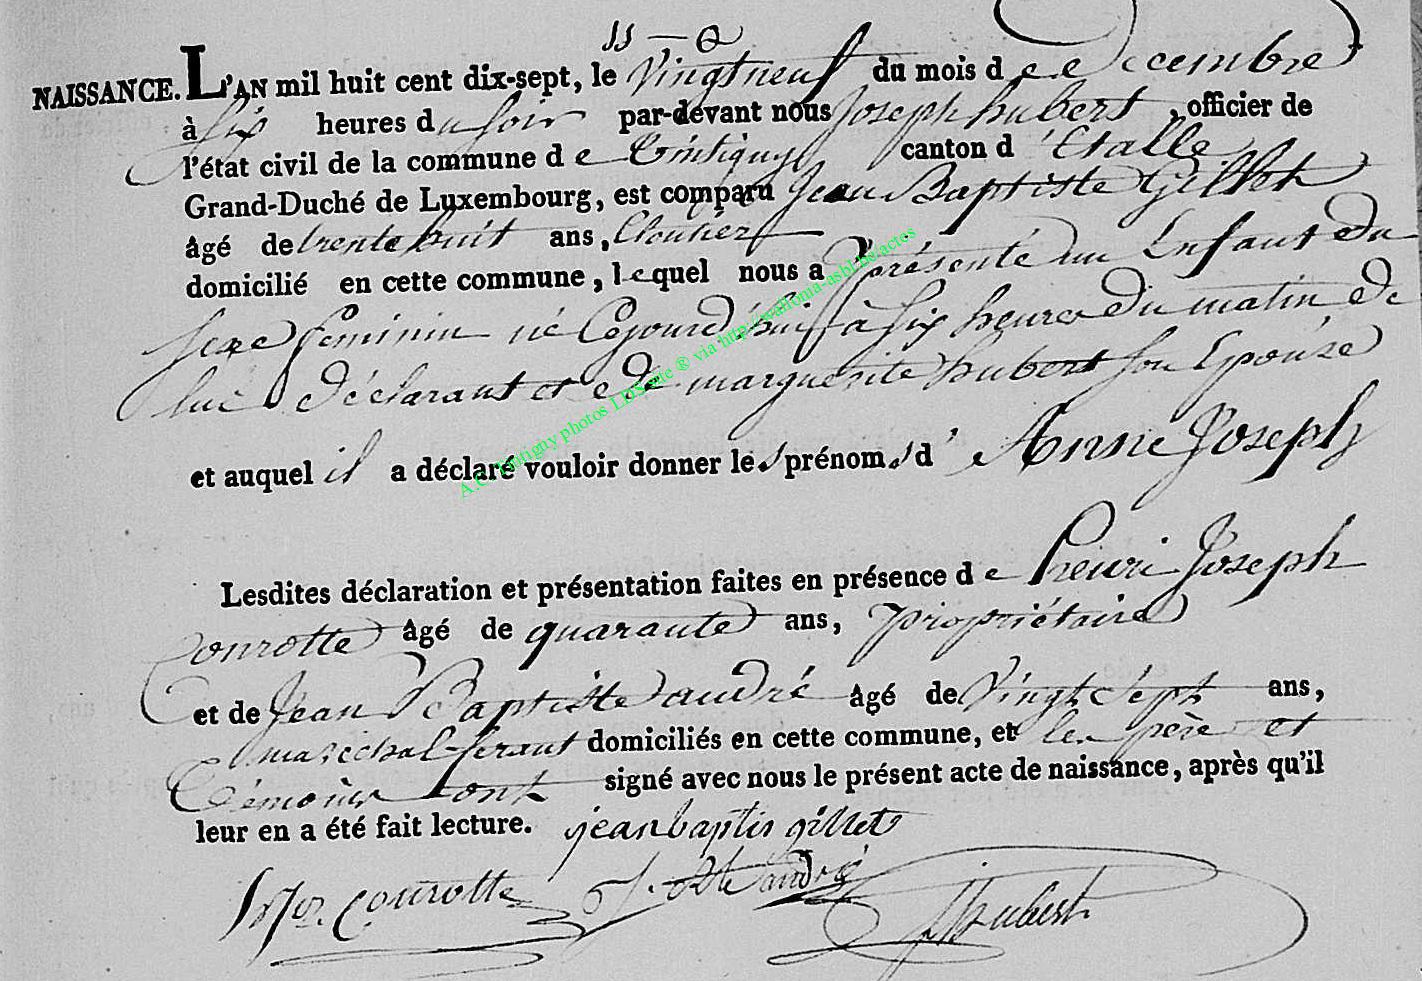 NAISSANCE. L'AN mil huit cent dix-sept, le Vingt neuf du mois de decembre
à six heures du soir par-devant nous Joseph hubert, officier de
l'état civil de la commune de Tintigny canton d'Etalle
Grand-Duché de Luxembourg, est comparu Jean Baptiste Gillet
âgé de trente huit ans, Cloutier
domicilié en cette commune, lequel nous a présenté un Enfant du
sexe feminin né Cejourd'hui à six heures du matin de
lui déclarant et de marguerite hubert son Epouse
et auquel il a déclaré vouloir donner les prénoms d'Anne Joseph
Lesdites déclaration et présentation faites en présence de henri Joseph
Courotte âgé de quarante ans, propriétaire
et de Jean Baptiste andré âgé de Vingt Sept ans,
maréchal ferant domiciliés en cette commune, et les père et
Témoins ont signé avec nous le présent acte de naissance, après qu'il
leur en a été fait lecture. jean baptis gillet
h Jos. Courotte J. Bte andré JHubert
A.C. Tintigny photos LDS site ® via http://wallonia-asbl.be/actes